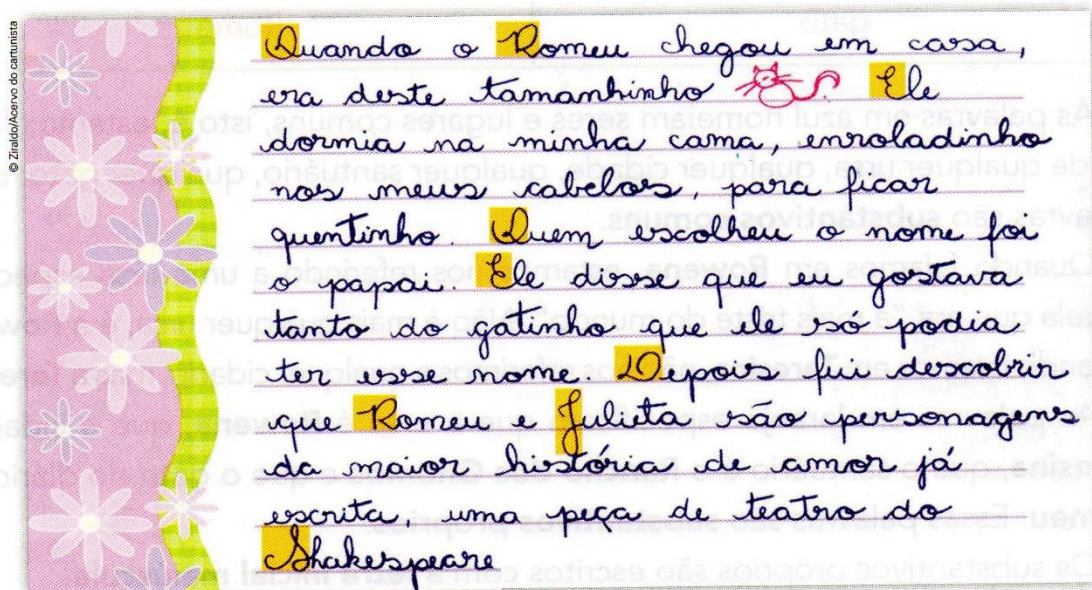 © Ziraldo/Acervo do cartunista
Quando o Romeu chegou em casa,
era deste tamanhinho . Ele
dormia na minha cama, enroladinho
nos meus cabelos, para ficar
quentinho. Quem escolheu o nome foi
o papai. Ele disse que eu gostava
tanto do gatinho que ele só podia
ter esse nome. Depois fui descobrir
que Romeu e Julieta são personagens
da maior história de amor já
escrita, uma peça de teatro do
Shakespeare